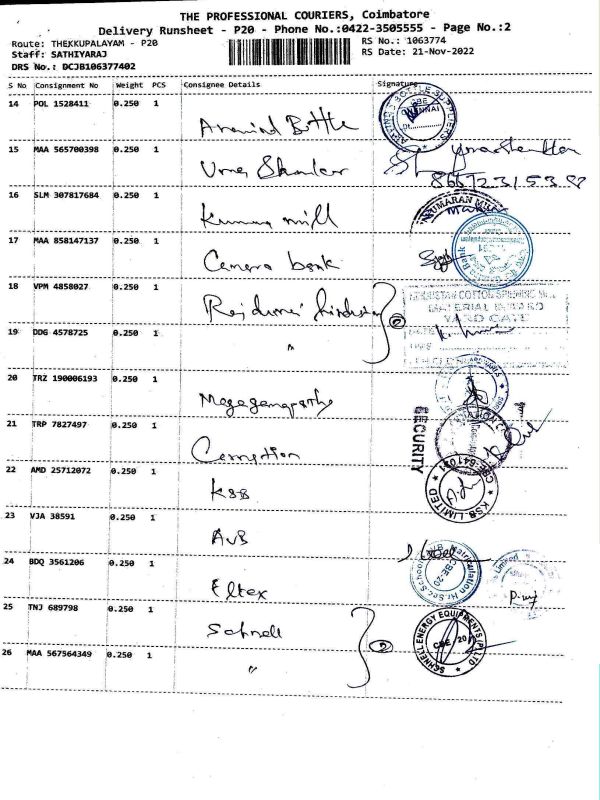 THE PROFESSIONAL COURIERS, Coimbatore
Delivery Runsheet - P20 - Phone No.:0422-3505555 - Page No.:2
Route: THEKKUPALAYAM - P20 RS No.: 1063774
Staff: SATHIYARAJ RS Date: 21-Nov-2022
DRS No.: DCJB106377402
S No Consignment No Weight PCS Consignee Details Signature
14 POL 1528411 0.250 1
Aravind Bottle
15 MAA 565700398 0.250 1
Uma Shankar
16 SLM 307817684 0.250 1
Kumaran mill
17 MAA 858147137 0.250 1
Canara bank
18 VPM 4858027 0.250 1
HINDUSTAN COTTON SPINNING MILL
MATERIAL INWARD
YARD GATE
19 DDG 4578725 0.250 1
"
20 TRZ 190006193 0.250 1
Megaganapathy
21 TRP 7827497 0.250 1
SECURITY
22 AMD 25712072 0.250 1
KSB
KSB LIMITED
23 VJA 38591 0.250 1
AVB
24 BDQ 3561206 0.250 1
Eltex
25 TNJ 689798 0.250 1
Schnell
SCHNELL ENERGY EQUIPMENTS (P) LTD
26 MAA 567564349 0.250 1
"